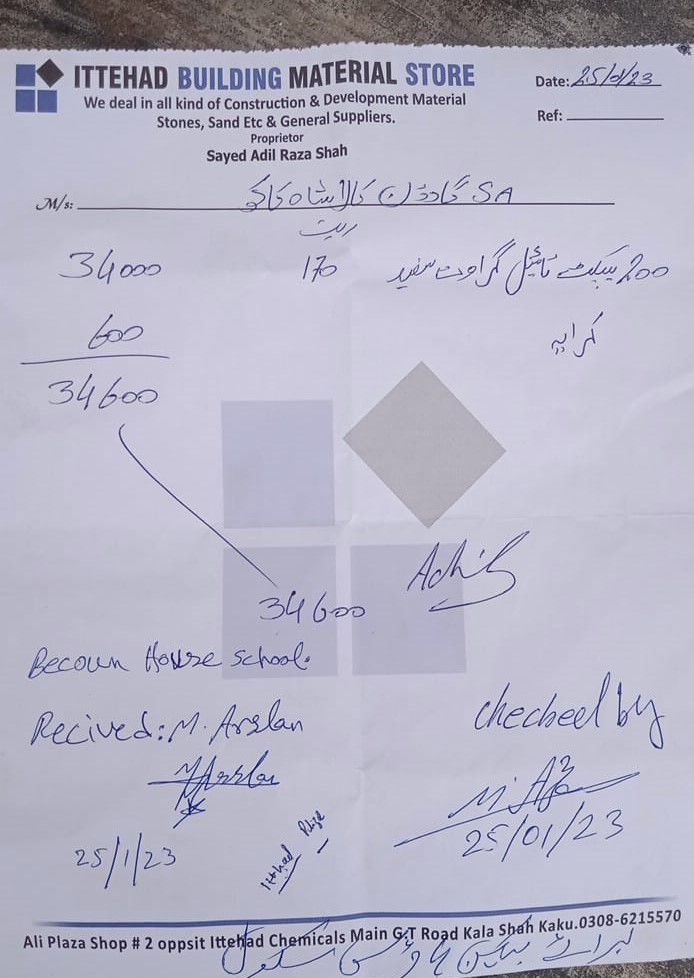 ITTEHAD BUILDING MATERIAL STORE
We deal in all kind of Construction & Development Material
Stones, Sand Etc & General Suppliers.
Proprietor
Sayed Adil Raza Shah
Date: 25/01/23
Ref:
M/s: SA گارڈن کالا شاہ کاکو
ریٹ
200 پیکٹ ٹائیل گراوٹ سفید 170 34000
کرایہ 600
34600
34600
Becoun House School.
Recived: M. Arslan
M Arslan
25/1/23
Ittehad
checked by
25/01/23
Ali Plaza Shop # 2 oppsit Ittehad Chemicals Main G.T Road Kala Shah Kaku.0308-6215570
برائے بیکن ہاؤس سکول